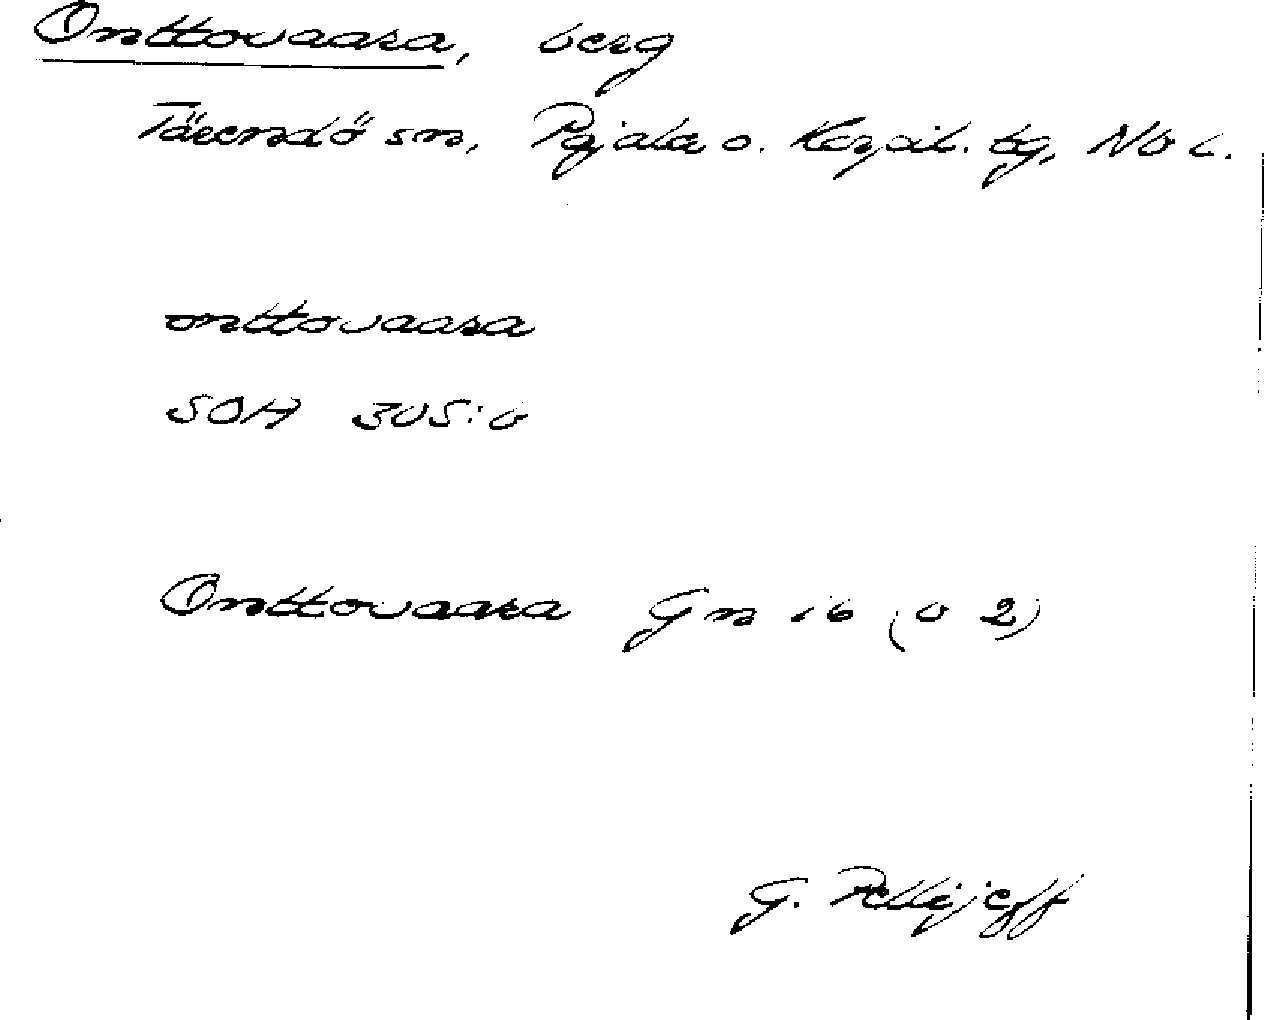 Onttovaara, berg
Tärendö sn, Pajala o. Korpil. tg, Nb l.
onttovaara
SOH 305:6
Onttovaara Gn 16 (0 2)
G. Pellijeff